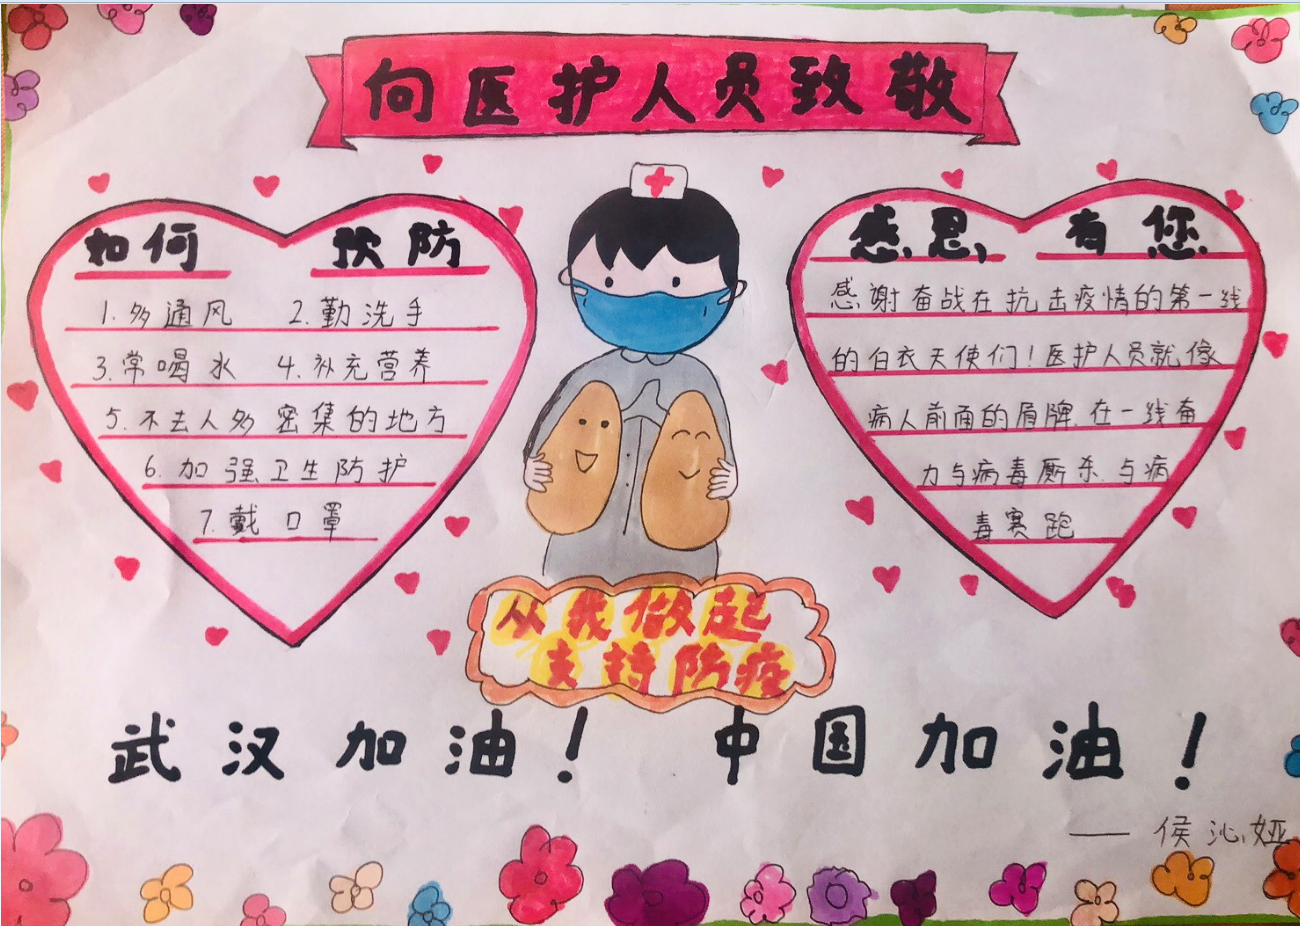 向医护人员致敬
如何 预防
1.多通风 2.勤洗手
3.常喝水 4.补充营养
5.不去人多密集的地方
6.加强卫生防护
7.戴口罩
感恩,有您
感谢奋战在抗击疫情的第一线
的白衣天使们!医护人员就像
病人前面的盾牌.在一线奋
力与病毒厮杀.与病
毒赛跑
从我做起
支持防疫
武汉加油! 中国加油!
——侯沁娅